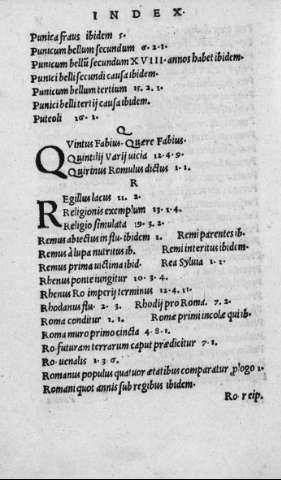 INDEX.
Punica fraus ibidem 5.
Punicum bellum secundum 6.2.1.
Punicum bellū secundum XVIII. annos habet ibidem.
Punici belli secundi causa ibidem.
Punicum bellum tertium 15.2.1.
Punici belli tertij causa ibidem.
Puteoli 16.1.
Q
QVintus Fabius. Quære Fabius.
Quintilij Varij uicia 12.4.9.
Quirinus Romulus dictus 1.1.
R
REgillus lacus 11.2.
Religionis exemplum 13.1.4.
Religio simulata 19.3.2.
Remus abiectus in flu. ibidem 1. Remi parentes ib.
Remus à lupa nutritus ib. Remi interitus ibidem.
Remus prima uictima ibid. Rea Syluia 1.1.
Rhenus ponte iungitur 10.3.4.
Rhenus Ro imperij terminus 12.4.11.
Rhodanus flu. 2.3. Rhodij pro Roma. 7.2.
Roma conditur 1.1. Romæ primi incolæ qui ib.
Roma muro primo cincta 4.8.1.
Ro. futuram terrarum caput prædicitur 7.1.
Ro. uenalis 1.3.6.
Romanus populus quatuor ætatibus comparatur ꝓlogo 1.
Romani quot annis sub regibus ibidem.
Ro. reip.